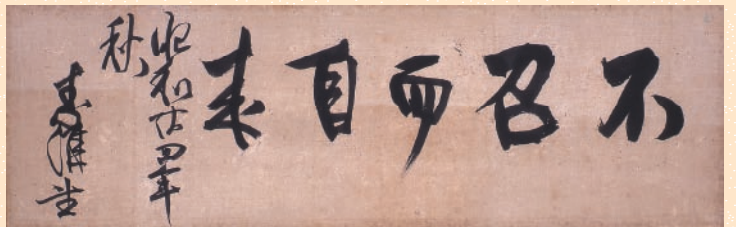 不召而自来
昭和廿四年
秋